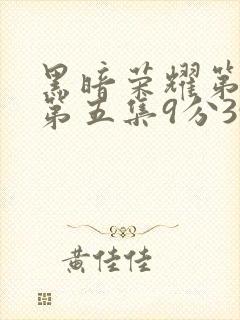 黑暗荣耀第
第五集9分3
黄佳佳